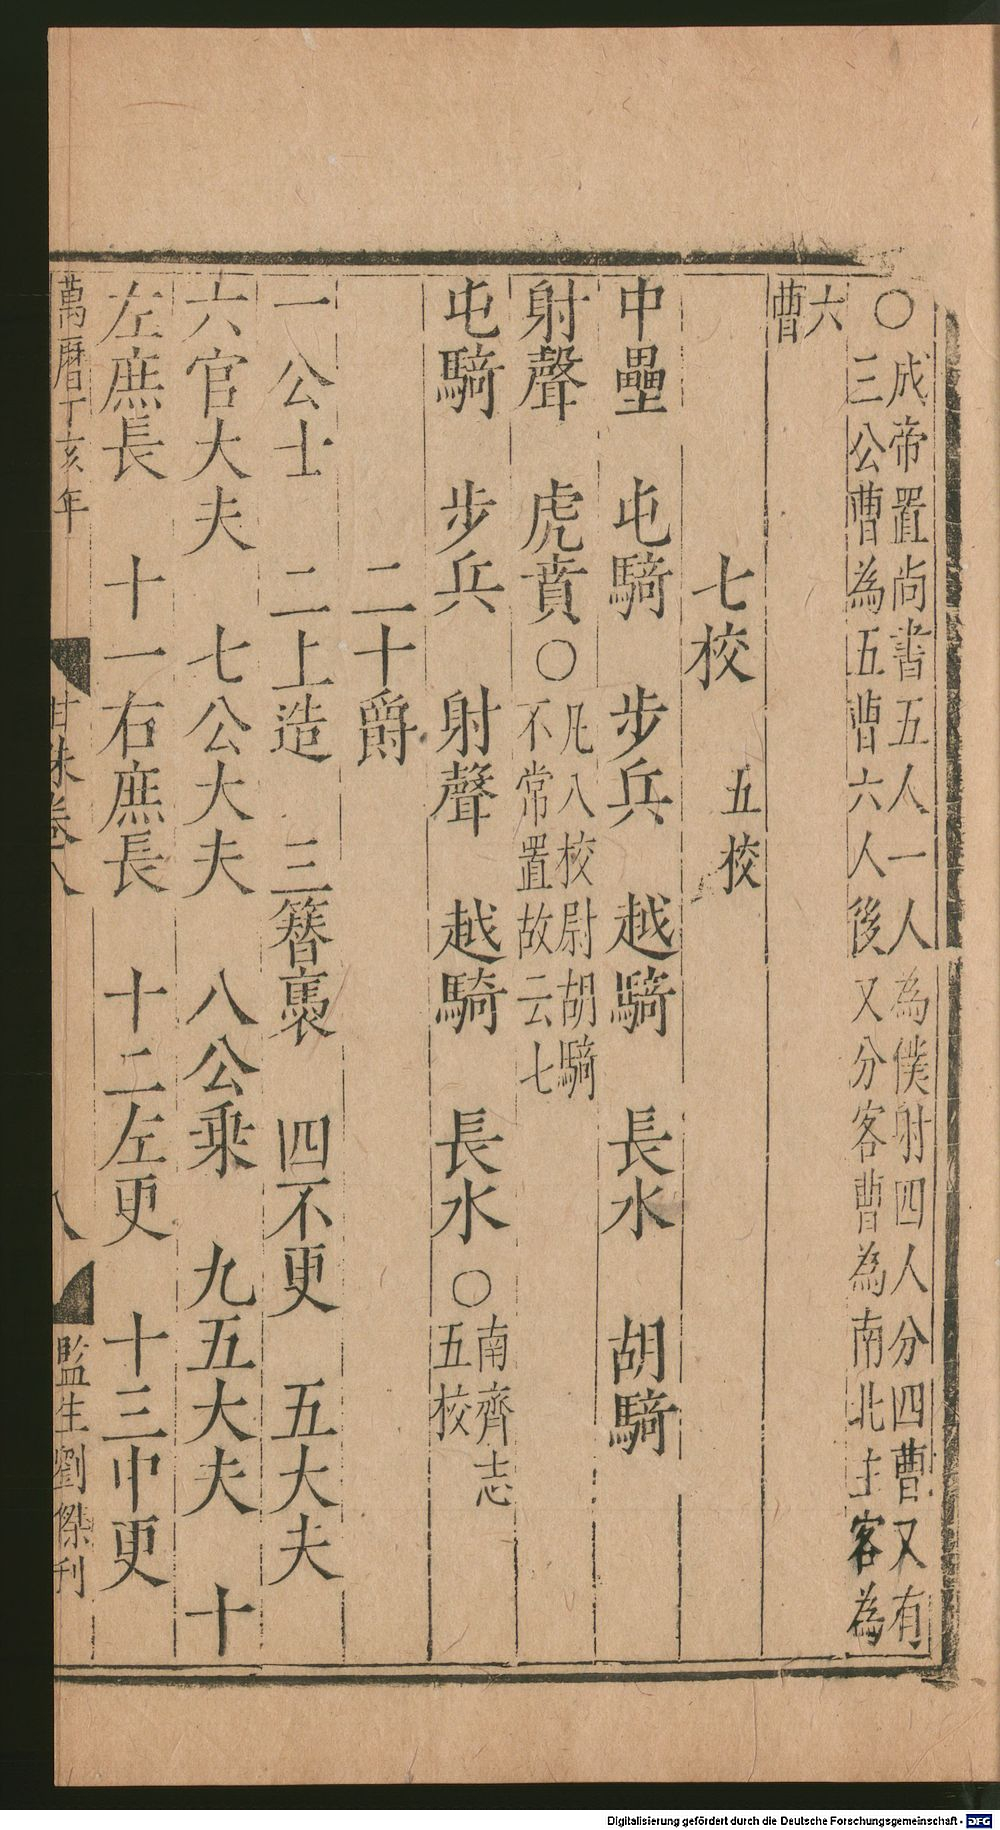 ○成帝置尚書五人一人為僕射四人分四曹又有
三公曹為五曹六人後又分客曹為南北主客為
六
曹
七校 五校
中壘 屯騎 步兵 越騎 長水 胡騎
射聲 虎賁○凡八校尉胡騎
不常置故云七
屯騎 步兵 射聲 越騎 長水○南齊志
五校
二十爵
一公士 二上造 三簪褭 四不更 五大夫
六官大夫 七公大夫 八公乘 九五大夫 十
左庶長 十一右庶長 十二左更 十三中更
萬曆丁亥年 卷八 八 監生劉傑刊
Digitalisierung gefördert durch die Deutsche Forschungsgemeinschaft - DFG